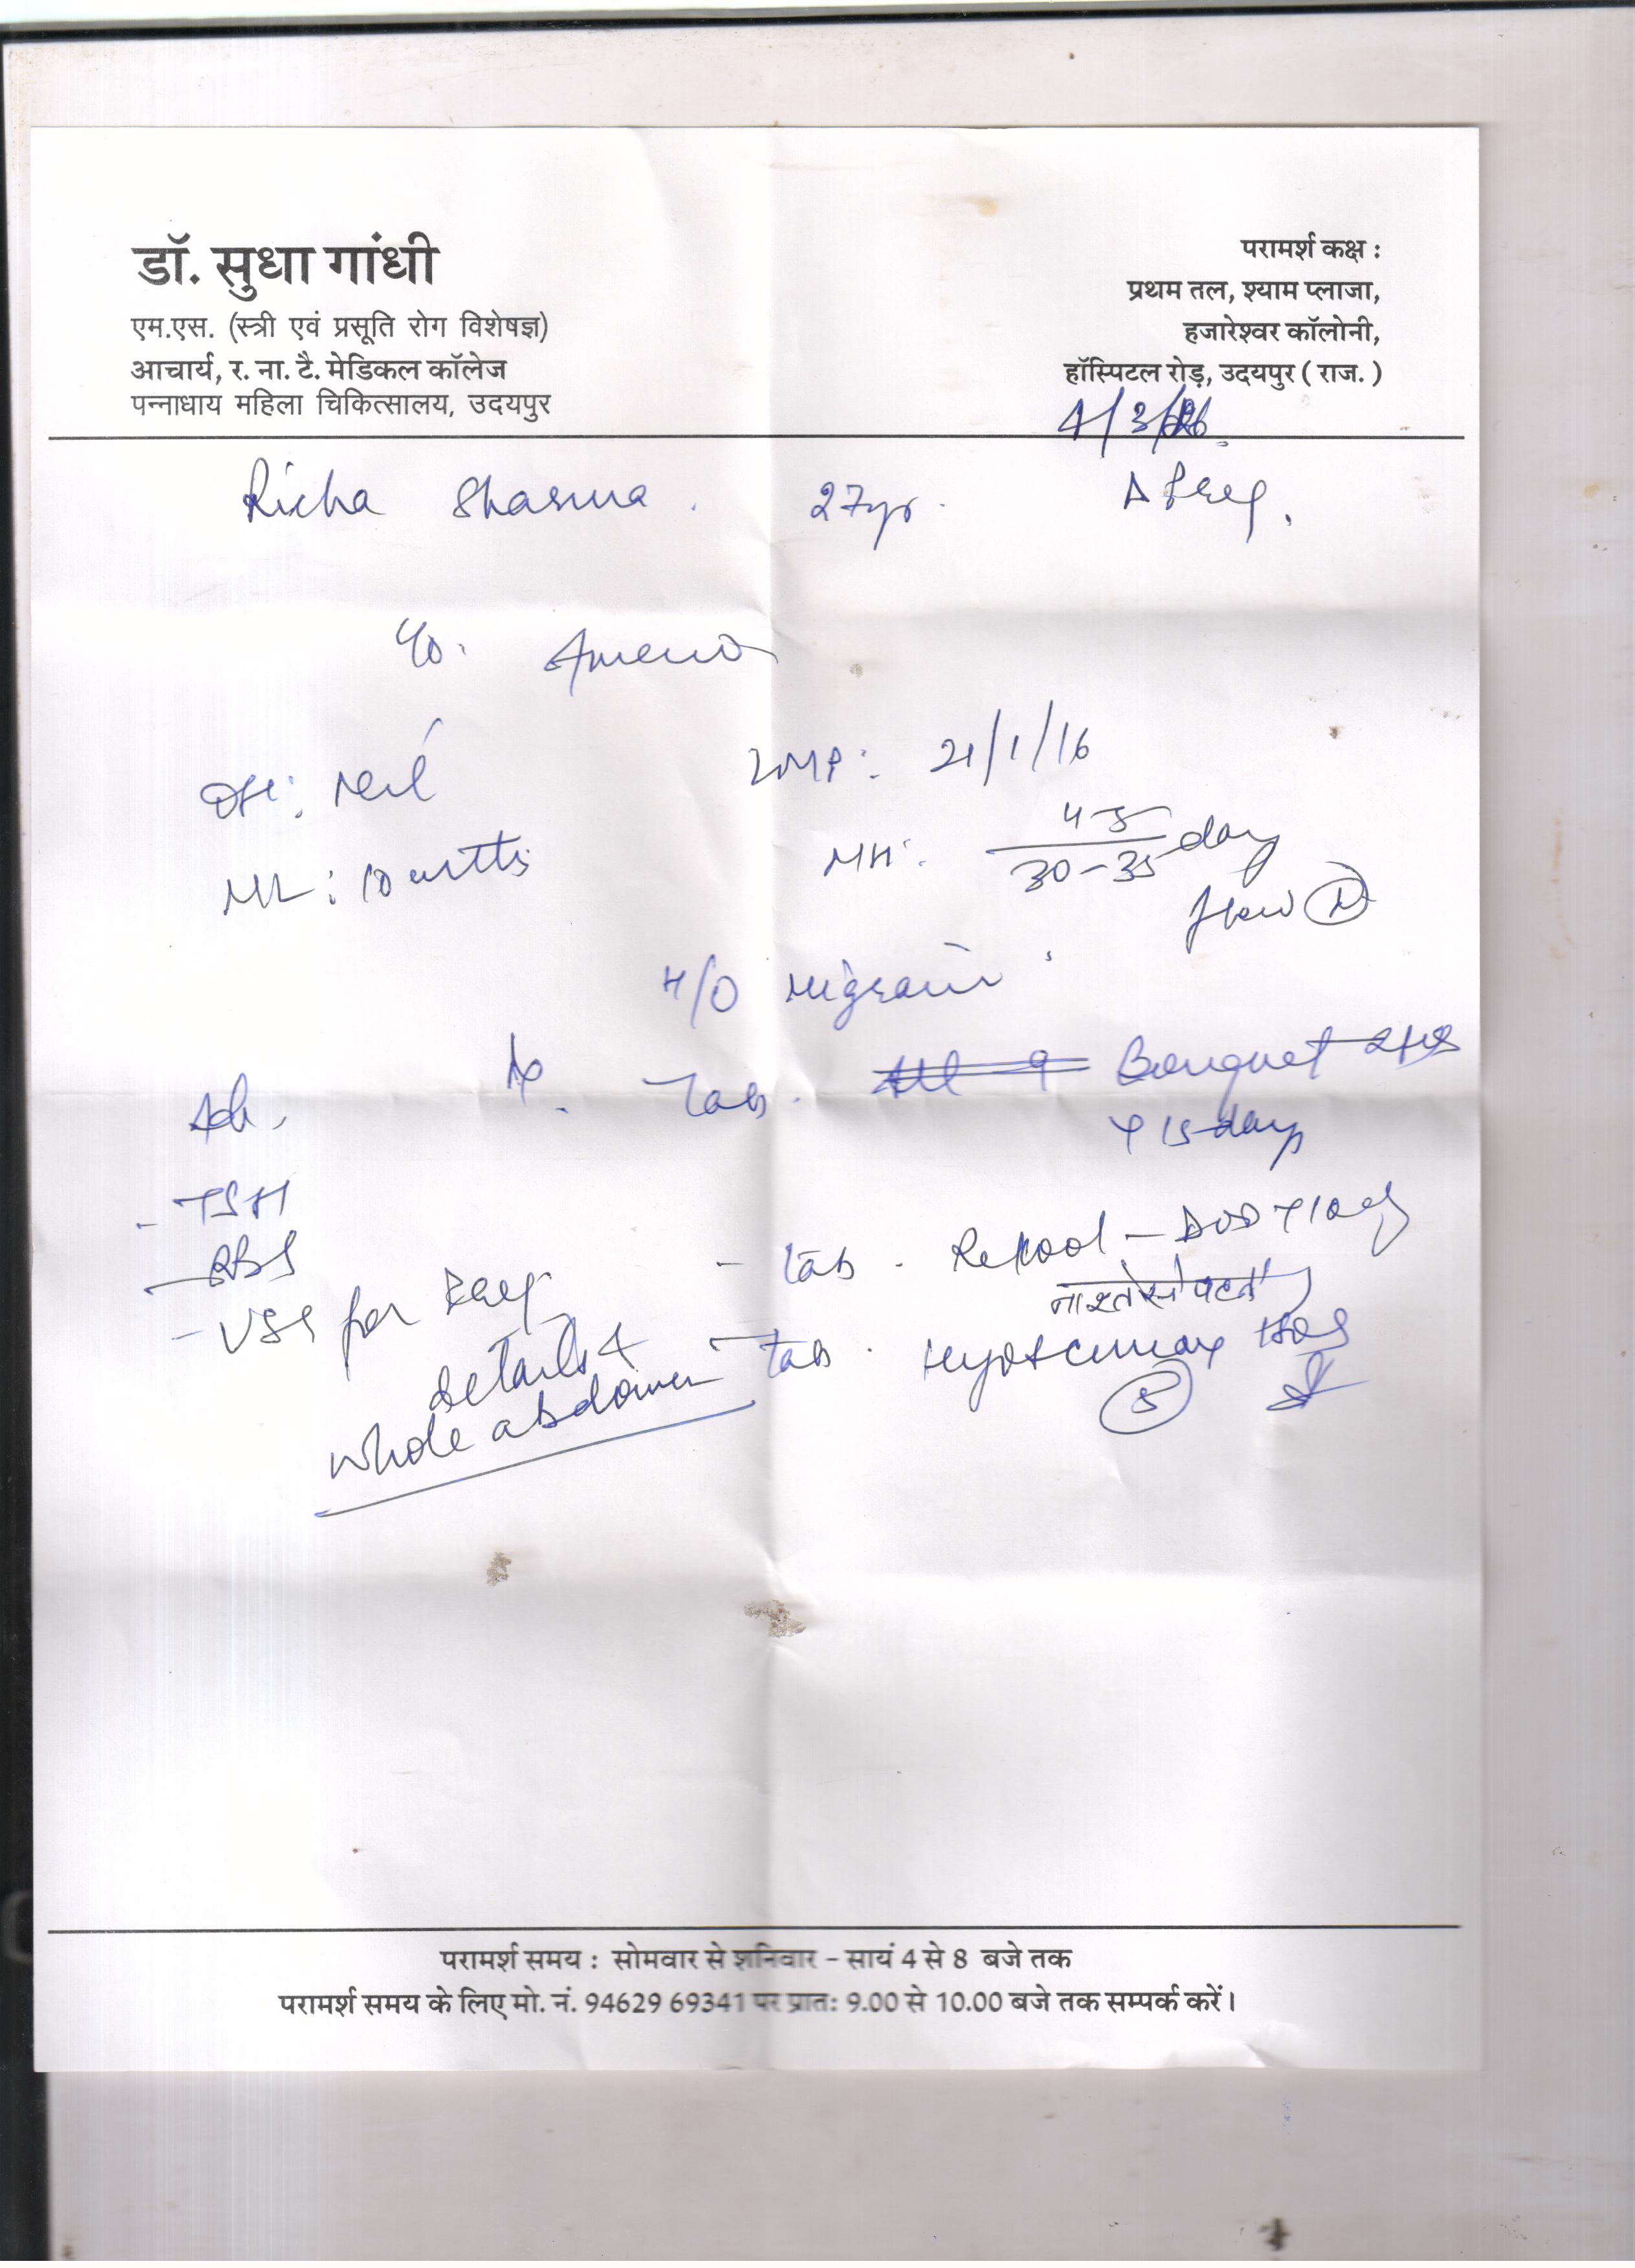 डॉ. सुधा गांधी
एम.एस. (स्त्री एवं प्रसूति रोग विशेषज्ञ)
आचार्य, र. ना. टै. मेडिकल कॉलेज
पन्नाधाय महिला चिकित्सालय, उदयपुर
परामर्श कक्ष :
प्रथम तल, श्याम प्लाजा,
हजारेश्वर कॉलोनी,
हॉस्पिटल रोड़, उदयपुर ( राज. )
4/3/
Richa Sharma. 27yr.
C/o.
OH: Nil
LMP: 21/1/16
ML: 10 mths
MH: 4-5
30-35 day
flow (N)
H/O Migrain
Adv.
Rx. Tab.
x 15 days
- TSH
- RBS
- USG for Preg
details &
whole abdomen
- Tab. Rekool -
नाश्ते से पहले
- Tab.
(5)
परामर्श समय : सोमवार से शनिवार - सायं 4 से 8 बजे तक
परामर्श समय के लिए मो. नं. 94629 69341 पर प्रात: 9.00 से 10.00 बजे तक सम्पर्क करें।